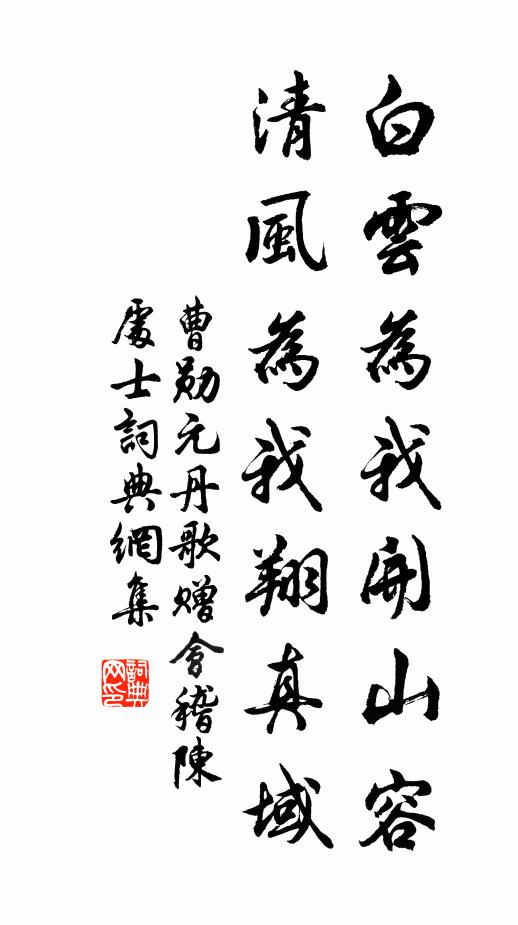 白雲為我開山容
清風為我翔真域
曹勛元丹歌贈會稽陳
處士詞典網集
詞典網印